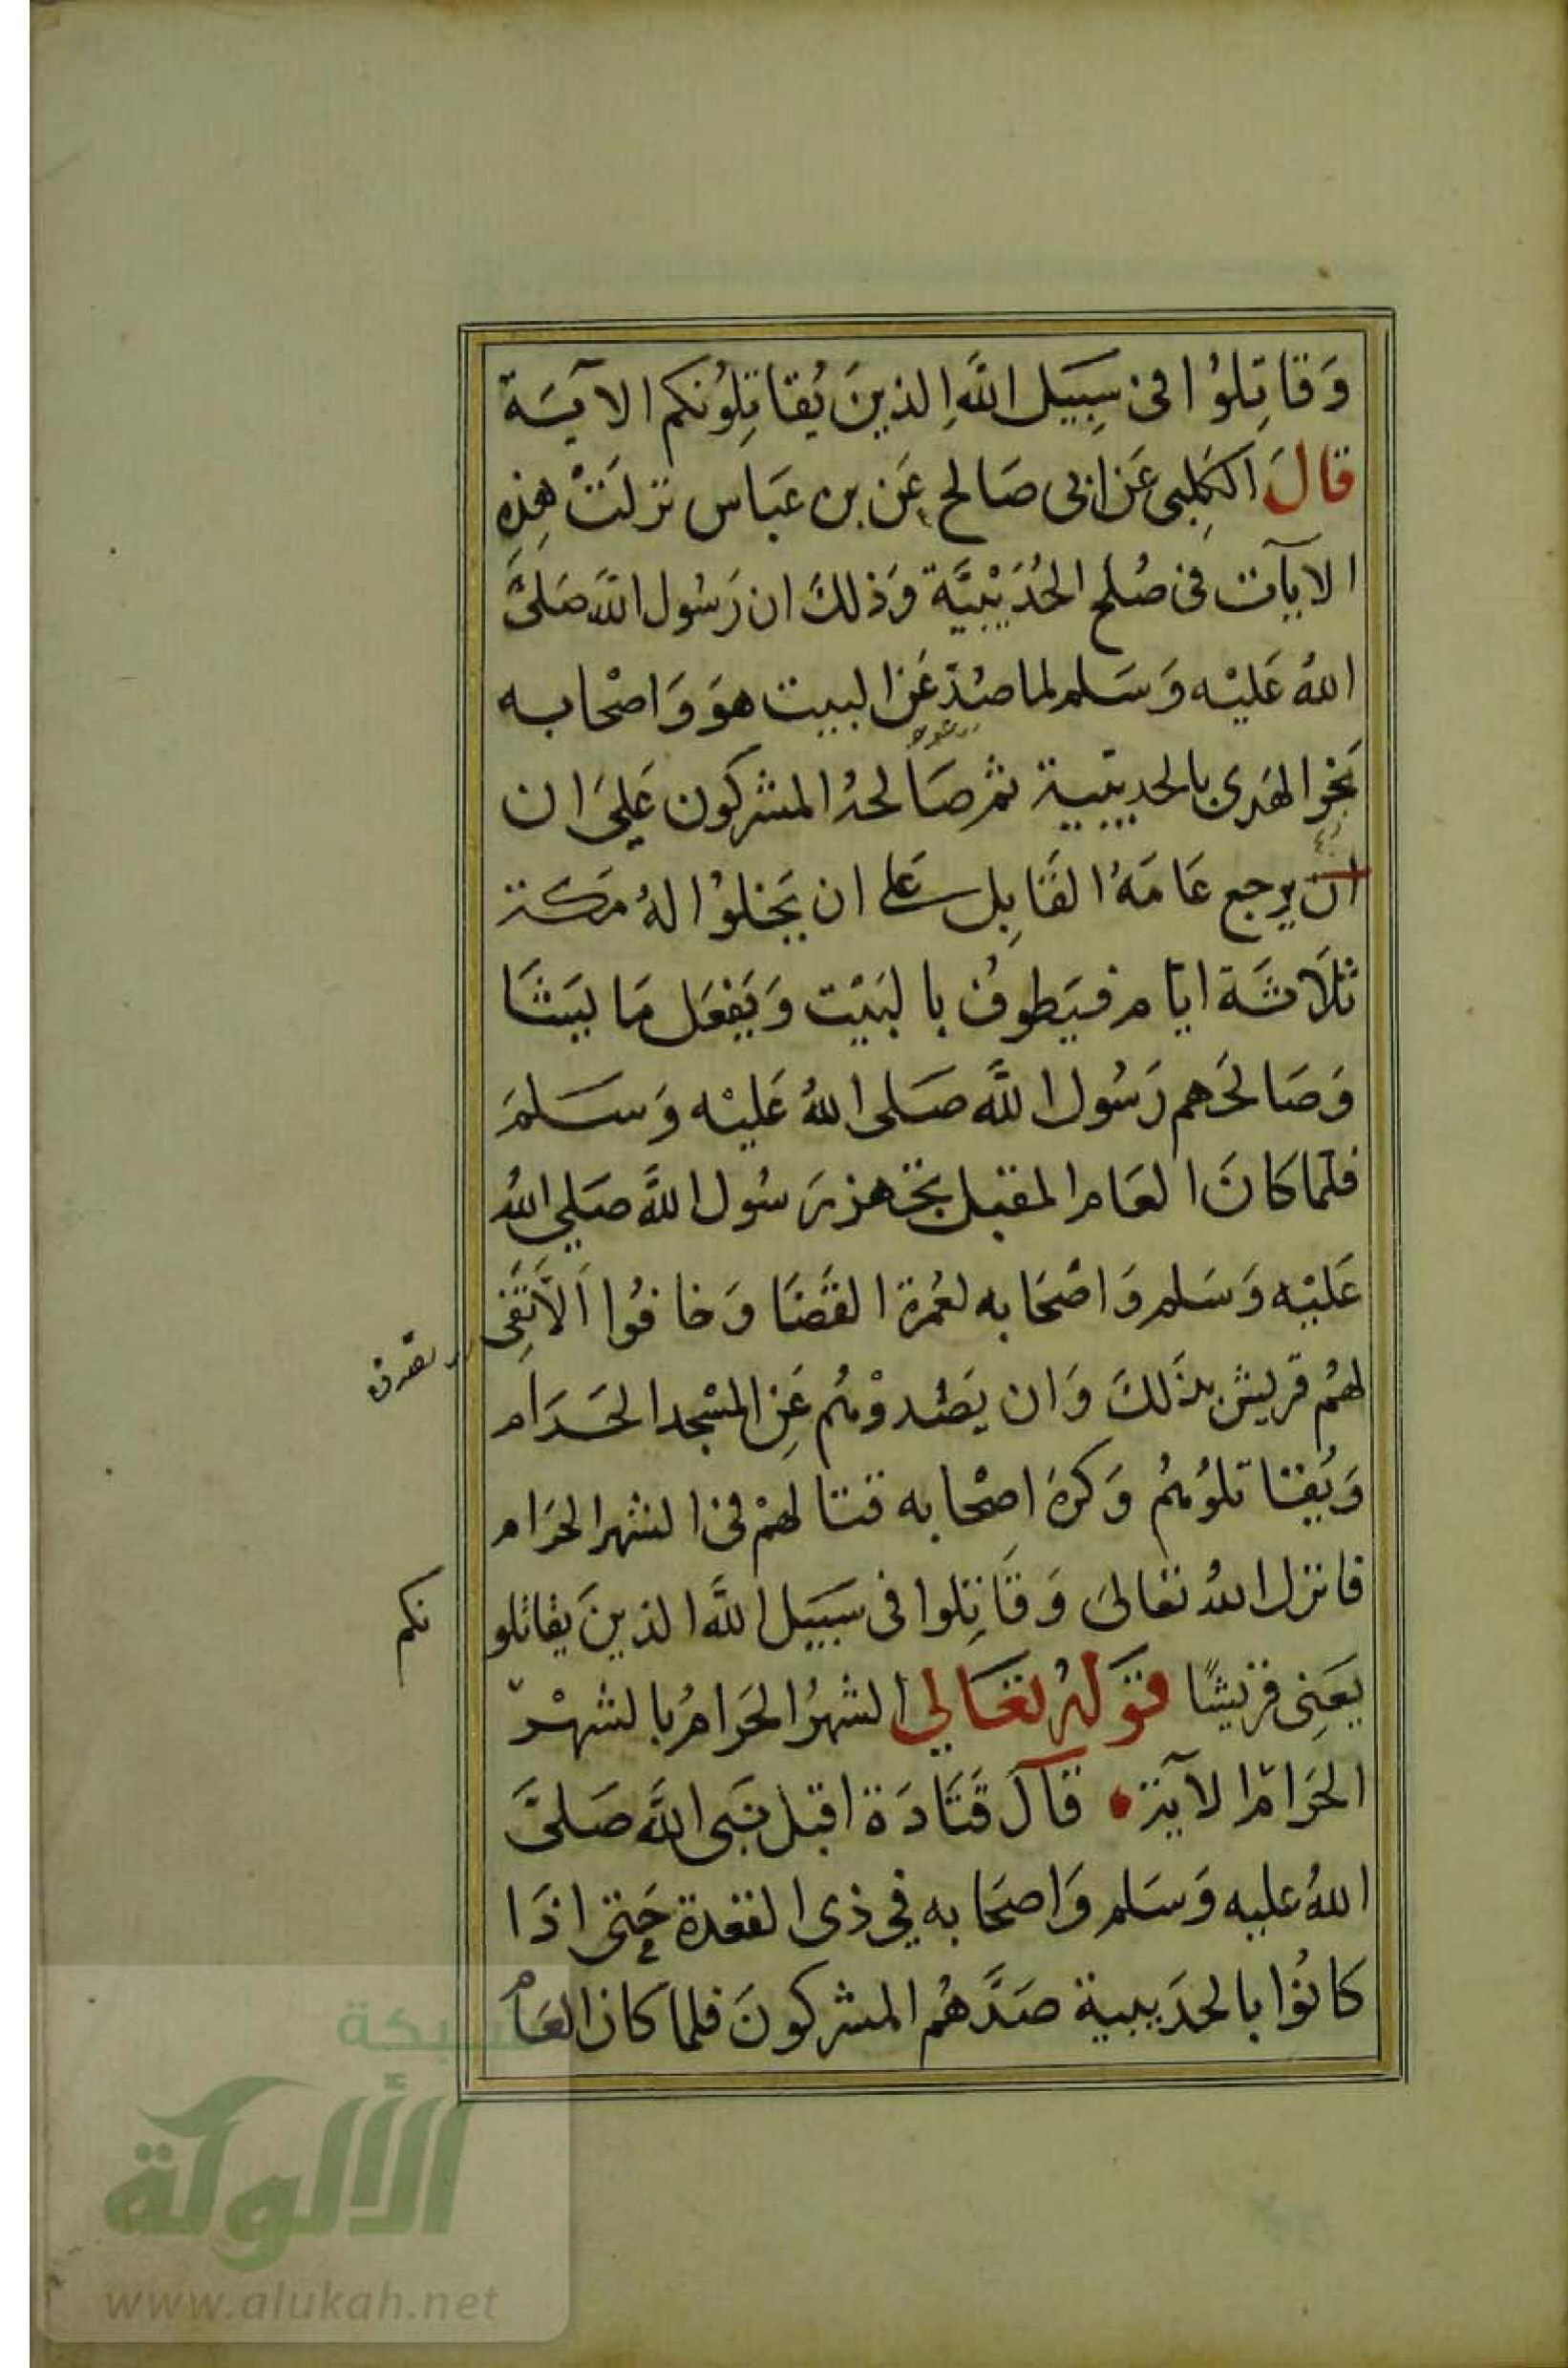 وَقَاتِلُوا فى سَبِيَل اللَّهِ الذينَ يُقاتِلُونكم الآيَة
قالَ الكَلِبى عَن ابى صَالح عَن بن عبَاس نزلَتْ هَذِهِ
الايآت فى صُلح الحُدَيْبيَّة وَذلكَ ان رَسُول اللَّه صَلىَّ
اللهُ عَليْه وَسَلم لما صُدَّ عَن البيت هوَ وَاصْحابه
نحَرَ الهَدى بالحديبية ثم صَالحهُ المشركون عَلىَ ان
ان يرجع عَامَهُ القَابِل على ان يَخلوُا لهُ مَكة
ثلَاثَة ايّام فيَطوفُ بالبَيْت وَيَفعَل مَا يَشَا
وَصَالحَهم رَسُول اللَّه صَلى اللهُ عَليْه وَسَلمَ
فلمّا كانَ العَام المقبل تجَهز رَسُول اللَّه صَلي اللهُ
عَليْه وَسَلم وَاصْحَابه لعُمرة القَضَا وَخافُوا اَلَّا تَفِى
تصدق
لهُم قريش بذَلكَ وَان يَصُدوْهُم عَنِ المسْجد الحَرَام
وَيُقاتلوُهُم وَكرهَ اصْحابه قتالهمْ فى الشهر الحرَام
فانزل اللهُ تعَالىَ وَقَاتِلوا فى سَبيَل اللَّه الذينَ يقاتلو
نكم
يَعنِى قريشًا قوَلهُ تعَالي الشهرُ الحَرامُ بالشهْر
الحَرام الآية قالَ قَتَادَة اقبل نبَى اللَّه صَلىَّ
اللهُ عليه وَسَلم وَاصحَابه في ذى القعدة حَتى اذَا
كانُوا بالحدَيبية صَدَّهُم المشركونَ فلما كان العَامُ
شبكة
الألوكة
www.alukah.net